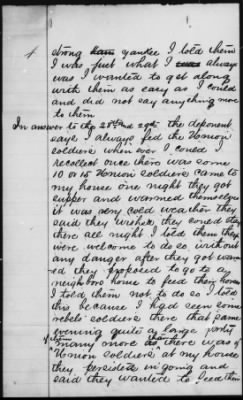 strong yankee I told them
I was just what I always
was I wanted to get along
with them as easy as I could
and did not say anything more
to them
In answer to the 28th and 29th the deponent
says I always fed the Union
soldiers when ever I could I
recollect once there was some
10 or 15 Union soldiers came to
my house one night they got
supper and warmed themselves
it was very coled weather they
said they wished they could stay
there all night I told them they
were welcome to do so, without
any danger after they got warm
ed they proposed to go to a
neighbors house to feed their horses
I told them not to do so I told
this because I had seen some
rebels soldiers there that same
evening quite a large party
many more than there was of
Union soldiers at my house
they persisted in going and
said they wanted to feed their